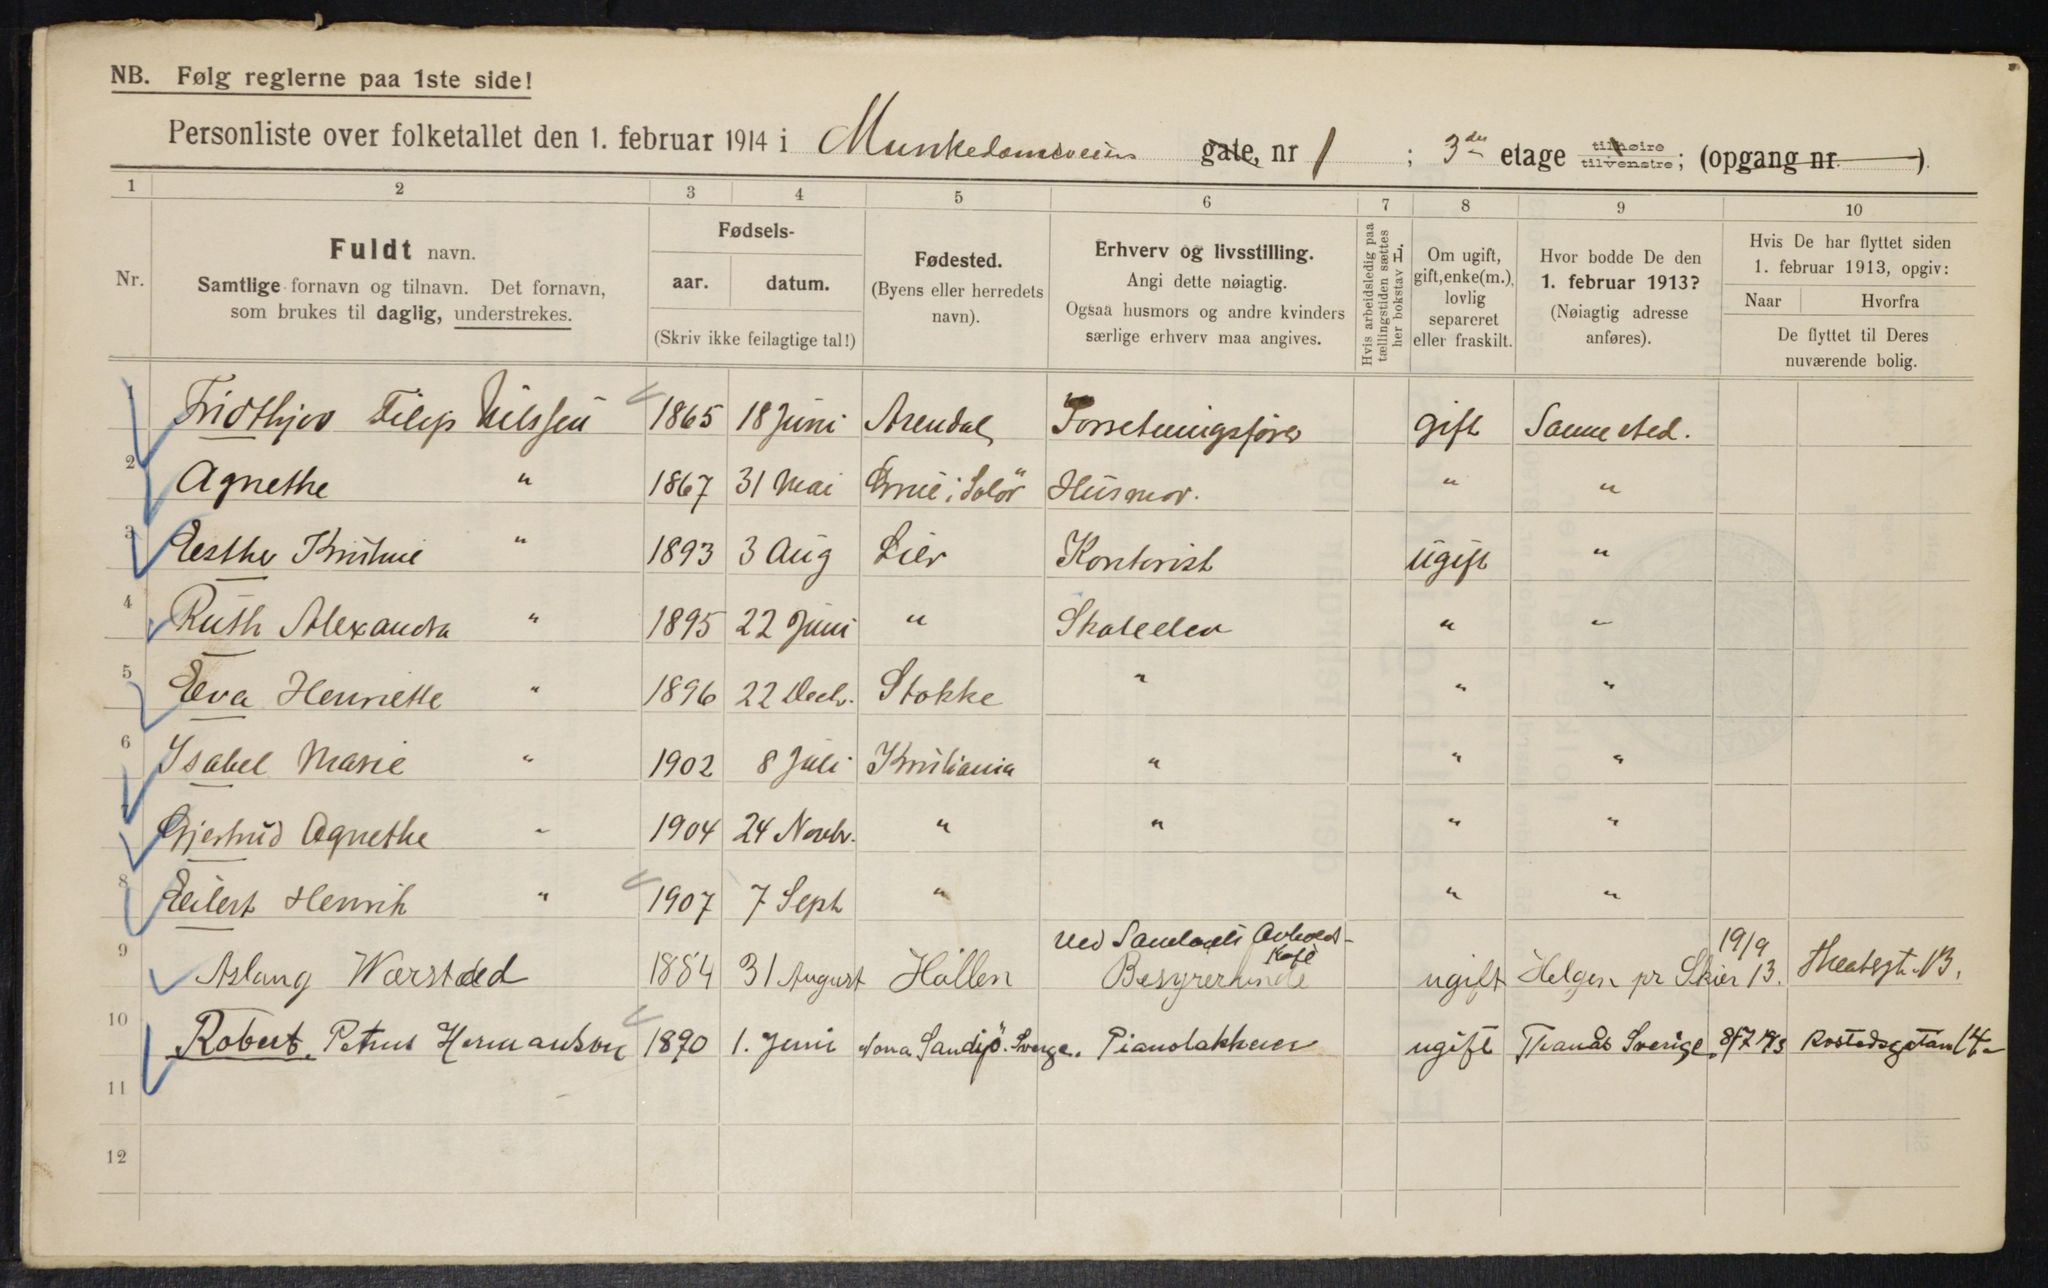 NB. Følg reglerne paa 1ste side!
Personliste over folketallet den 1. februar 1914 i Munkedamsveien gate, nr 1 ; 3die etage tilhøire tilvenstre; (opgang nr. )
1 2 3 4 5 6 7 8 9 10
Nr.
Fuldt navn.
Samtlige fornavn og tilnavn. Det fornavn,
som brukes til daglig, understrekes.
Fødsels-
aar. datum.
(Skriv ikke feilagtige tal!)
Fødested.
(Byens eller herredets
navn).
Erhverv og livsstilling.
Angi dette nøiagtig.
Ogsaa husmors og andre kvinders
særlige erhverv maa angives.
Hvis arbeidsledig paa
tællingstiden sættes
her bokstav L.
Om ugift,
gift, enke(m.),
lovlig
separeret
eller fraskilt.
Hvor bodde De den
1. februar 1913?
(Nøiagtig adresse
anføres).
Hvis De har flyttet siden
1. februar 1913, opgiv:
Naar Hvorfra
De flyttet til Deres
nuværende bolig.
1 Fridthjov Filip Nilssen 1865 18 Juni Arendal Forretningsfører gift Samme sted.
2 Agnethe " 1867 31 Mai Grue i Solør Husmor. " "
3 Esther Kristine " 1893 3 Aug Lier Kontorist ugift "
4 Ruth Alexandra " 1895 22 Juni " Skoleelev " "
5 Eva Henriette " 1896 22 Decb. Stokke " " "
6 Isabel Marie " 1902 8 Juli Kristiania " " "
7 Gjertrud Agnethe " 1904 24 Novb. " " " "
8 Eilert Henrik " 1907 7 Sept " " "
9 Aslaug Wærstad 1884 31 August Hollen Ved Samlagets Avholds-
Kafè
Bestyrerinde ugift Helgen pr Skien 19/9 13. Theatergt. 13.
10 Robert Petrus Hermanson 1890 1. Juni Norra Sandsjö. Sverge. Pianolakkerer ugift Tranås Sverige. 8/7 1913 Rostedsgatan 14
11
12